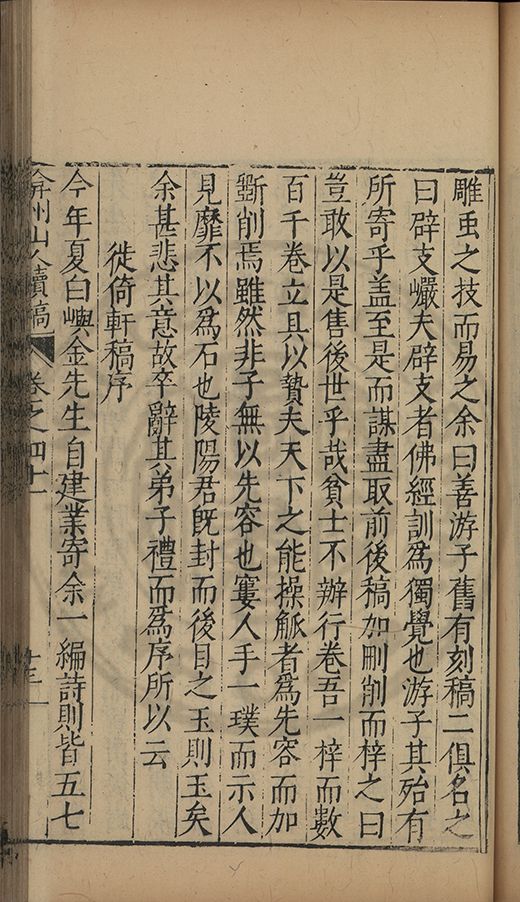 雕䖝之技而易之余曰善游子舊有刻稿二俱名之
曰辟支巖夫辟支者佛經訓爲獨覺也游子其殆有
所寄乎盖至是而謀盡取前後稿加刪削而梓之曰
豈敢以是售後世乎哉貧士不辦行卷吾一梓而數
百千卷立具以贄夫天下之能操觚者爲先容而加
斵削焉雖然非子無以先容也窶人手一璞而示人
見靡不以爲石也陵陽君旣封而後目之玉則玉矣
余甚悲其意故卒辭其弟子禮而爲序所以云
徙倚軒稿序
今年夏白嶼金先生自建業寄余一編詩則皆五七
弇州山人續稿 卷之四十一